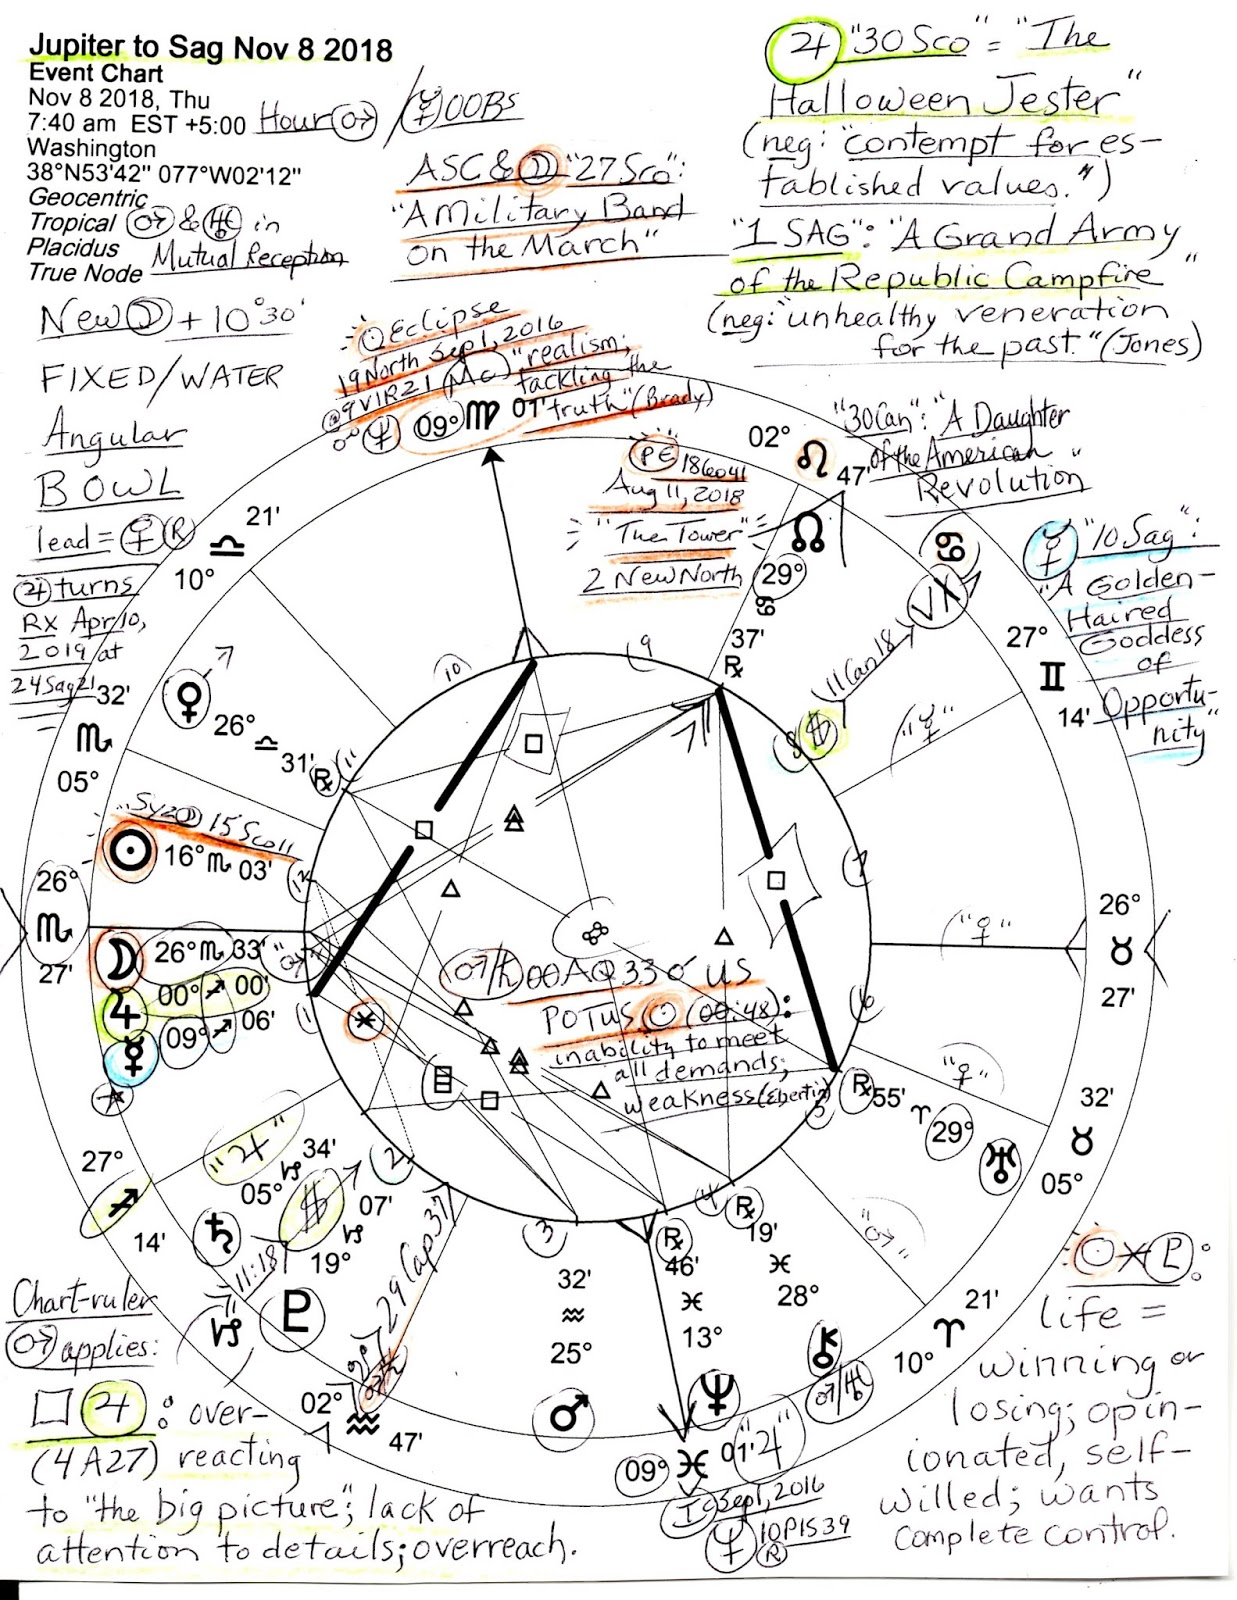 Jupiter to Sag Nov 8 2018
Event Chart
Nov 8 2018, Thu
7:40 am EST +5:00 Hour ♂ / ☿ OOBs
Washington
38°N53'42" 077°W02'12"
Geocentric
Tropical ♂ & ♅ in
Placidus Mutual Reception
True Node
New ☽ + 10°30'
FIXED/WATER
Angular
BOWL
lead = ♀ ℞
♃ turns
RX Apr 10,
2019 at
24Sag21
ASC & ☽ "27 Sco":
"A Military Band
on the March"
♃ "30 Sco" = "The
Halloween Jester"
(neg: "contempt for es-
tablished values.")
"1 SAG": "A Grand Army
of the Republic Campfire"
(neg: "unhealthy veneration
for the past." (Jones)
☉ Eclipse
19 North Sept 1, 2016
@9VIR21 (Mc) "realism;
tackling the
truth" (Brady)
☍ ♆ 09° ♍ 01'
PE 18Leo41
Aug 11, 2018
"The Tower"
2 New North
02° ♌ 47'
"30 Can": "A Daughter
of the American
Revolution"
☿ "10 Sag":
"A Golden-
Haired
Goddess
of
Opportu-
nity"
☊
29°
♋
37'
℞
♋
VX
11Can18
27°
♊
14'
"☿"
21'
♎
10°
32'
♏
05°
♀ 26° ♎ 31' ℞
"Syz ☽ 15Sco11
☉ 16° ♏ 03'
26°
♏
27'
☽ 26° ♏ 33' "♂"
♃ 00° ♐ 00'
☿ 09° ♐ 06'
♂/♄ 00AQ33 ☌ US
POTUS ☉ (00:48):
inability to meet
all demands;
weakness (Ebertin)
10
9
8
7
6
5
4
3
2
1
12
11
"♀"
26°
♉
27'
"♀"
32'
♉
05°
℞ 55' ♈ 29° ♅
"♂"
21'
♈
10°
27°
♐
14'
"♃"
♄ 05° ♑ 34'
♇ 19° ♑ 07'
11:18
♑
29Cap37
02°
♒
47'
32'
♒
25°
♂
℞
46'
♓
13°
♆
℞
19'
♓
28°
⚷
♂/♅
09° ♓ 01' "♃"
IC Sept 1, 2016
♆ 10PIS39
℞
Chart-ruler
♂ applies:
□ ♃: over-
(4A27) reacting
to "the big picture"; lack of
attention to details; overreach.
☉ ⚹ ♇:
life =
winning or
losing; opin-
ionated, self-
willed; wants
complete control.